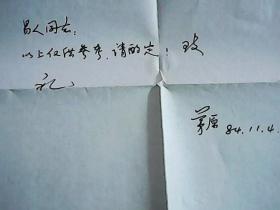 昌人同志:
以上仅供参考，请酌定；致
礼
茅原
84.11.4.